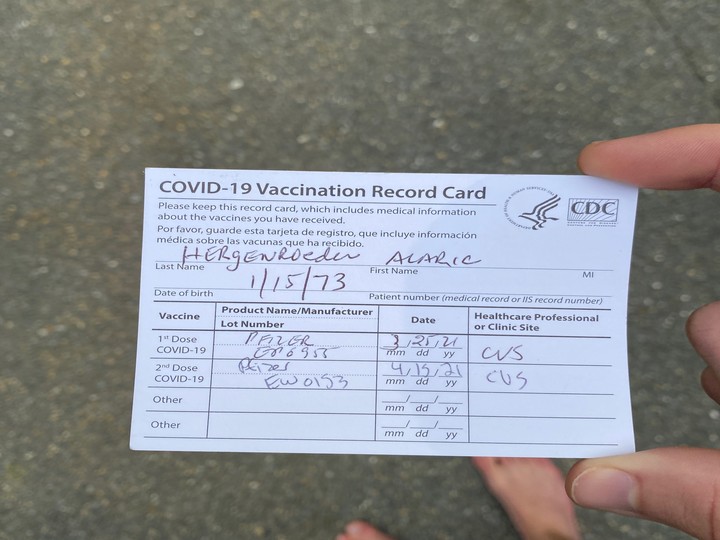 COVID-19 Vaccination Record Card
Please keep this record card, which includes medical information
about the vaccines you have received.
Por favor, guarde esta tarjeta de registro, que incluye información
médica sobre las vacunas que ha recibido.
CDC
HERgENROEDER ALARIC
Last Name First Name MI
1/15/73
Date of birth Patient number (medical record or IIS record number)
Vaccine Product Name/Manufacturer Date Healthcare Professional
Lot Number or Clinic Site
1st Dose PFIZER 3/25/21
COVID-19 mm dd yy CVS
2nd Dose Pfizer 4/15/21
COVID-19 EW0153 mm dd yy CVS
Other / /
mm dd yy
Other / /
mm dd yy